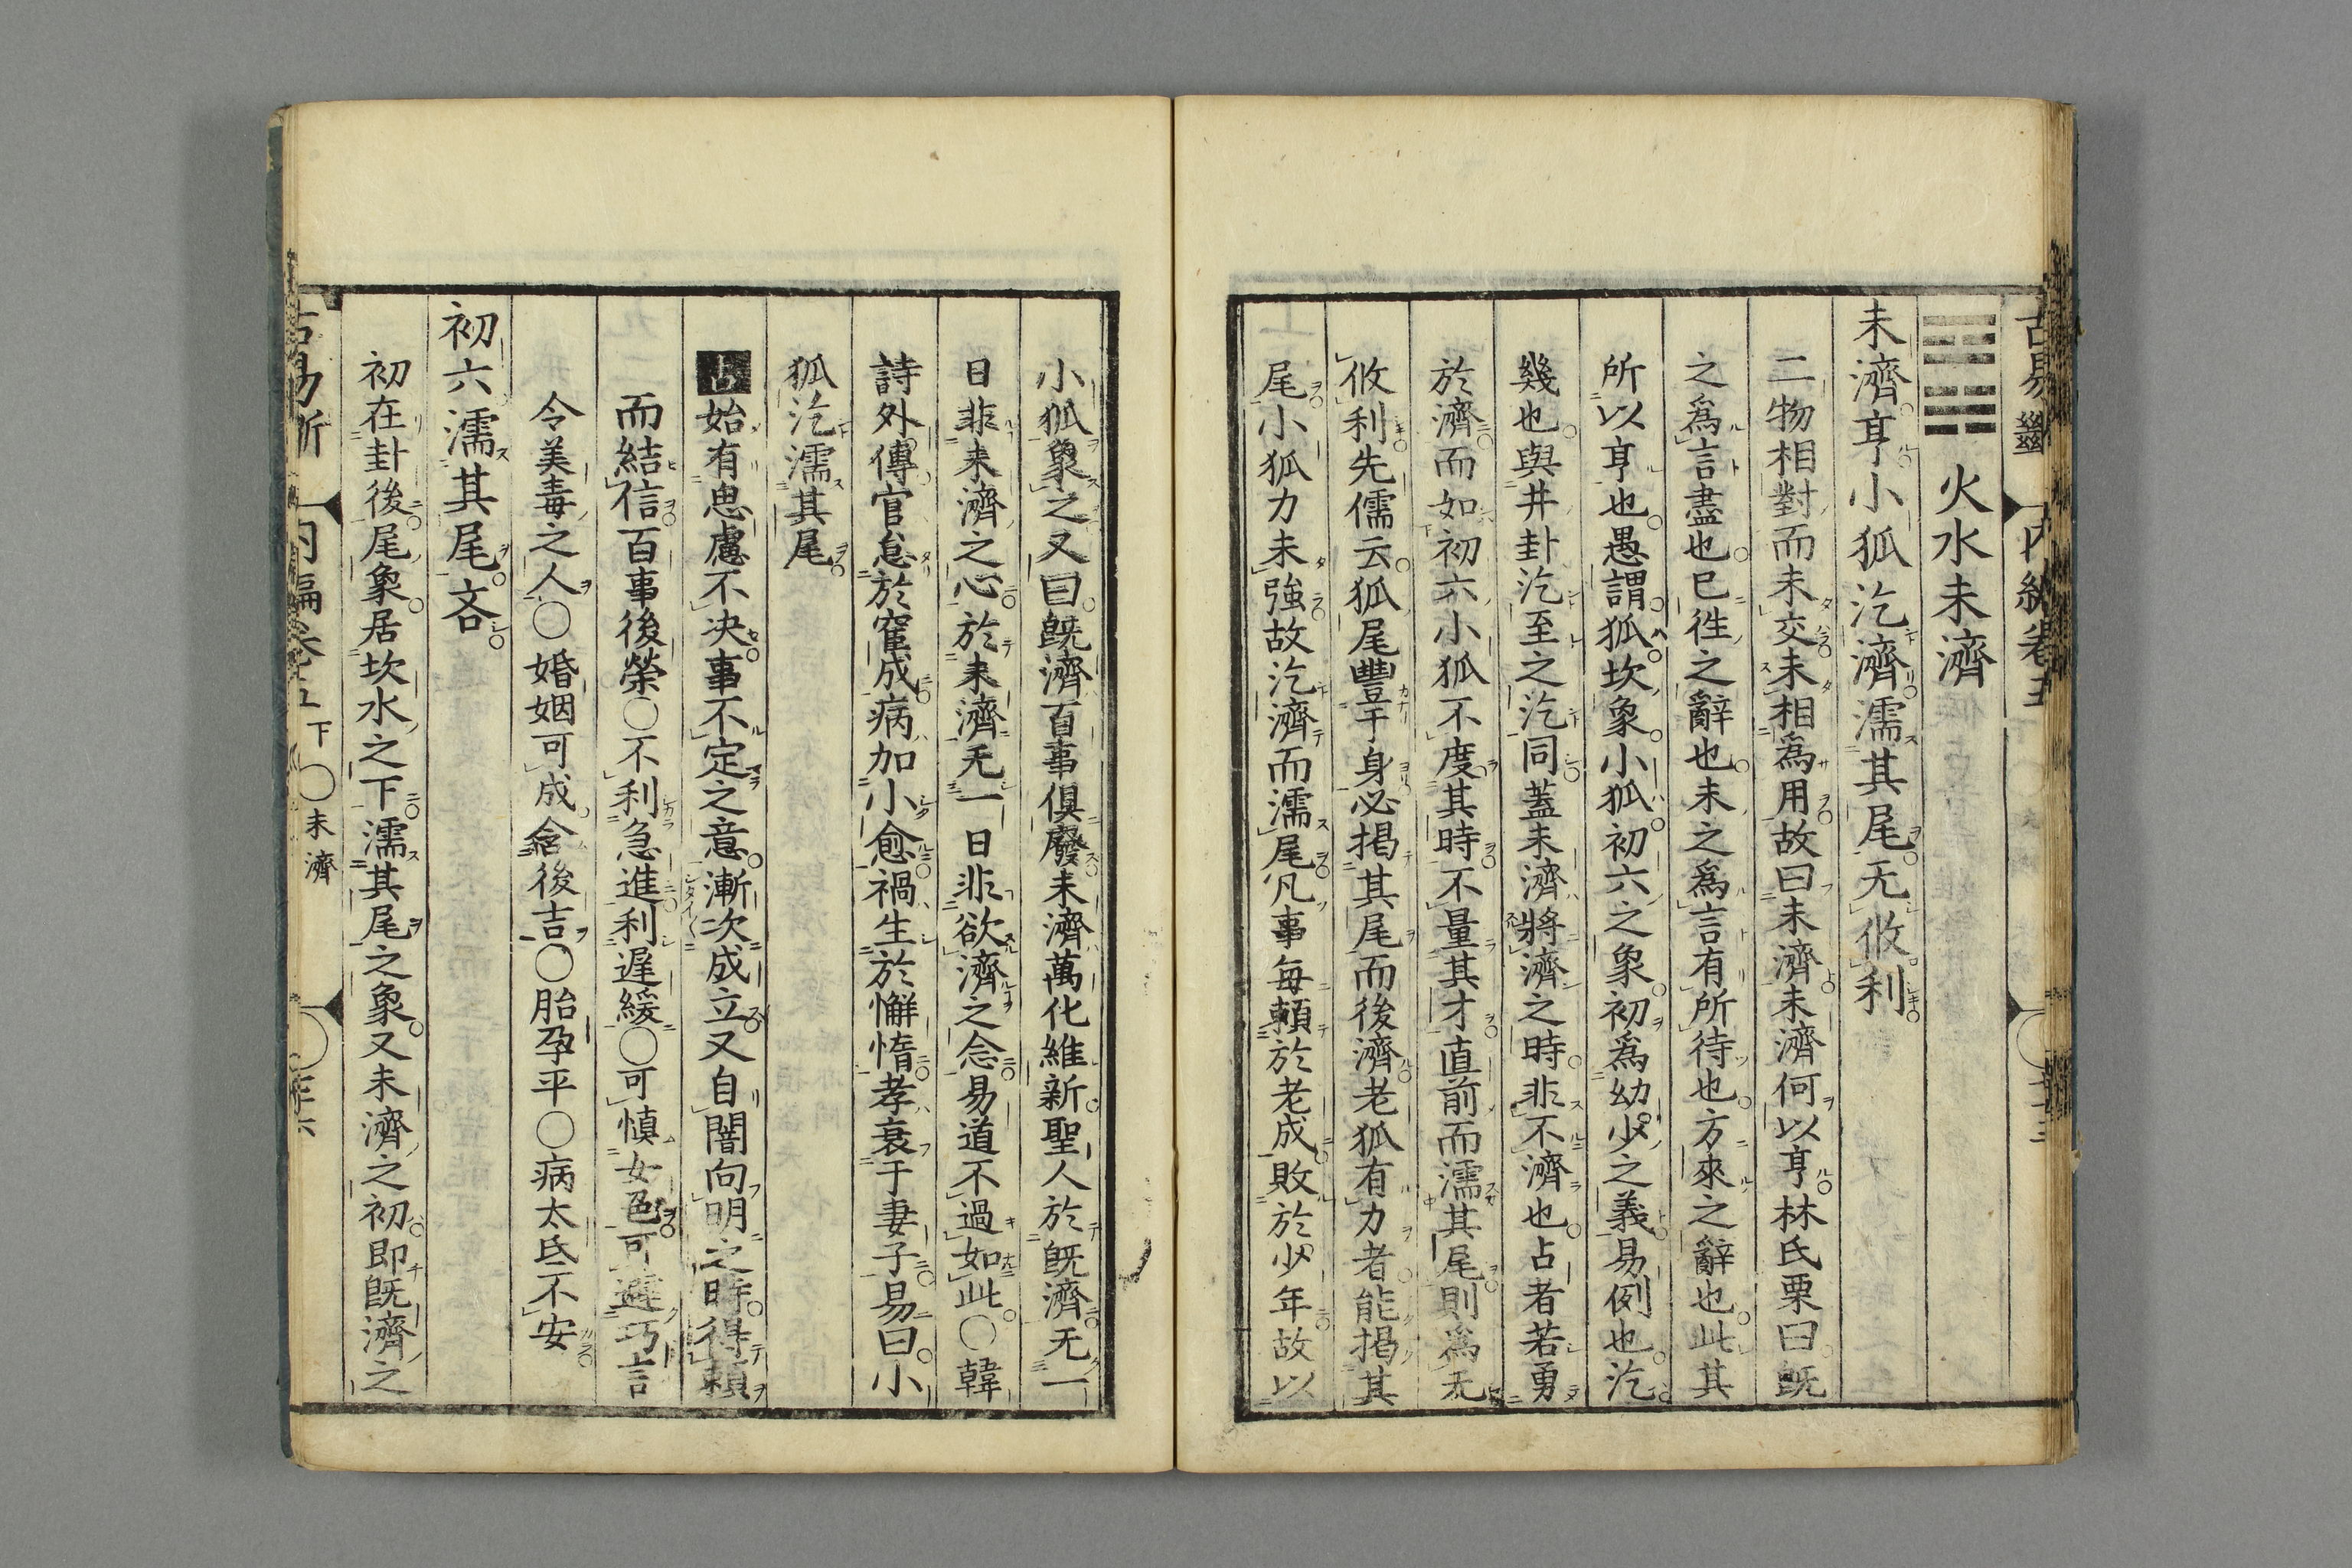 火水未濟
未濟亨小狐汔濟濡其尾无攸利
二物相對而未交未相爲用故曰未濟未濟何以亨林氏栗曰旣
之爲言盡也已徃之辭也未之爲言有所待也方來之辭也此其
所以亨也愚謂狐坎象小狐初六之象初爲幼少之義易例也汔
幾也與井卦汔至之汔同蓋未濟將濟之時非不濟也占者若勇
於濟而如初六小狐不度其時不量其才直前而濡其尾則爲无
攸利先儒云狐尾豐于身必揭其尾而後濟老狐有力者能揭其
尾小狐力未強故汔濟而濡尾凡事每頼於老成敗於少年故以
小狐象之又曰旣濟百事倶廢未濟萬化維新聖人於旣濟无一
日非未濟之心於未濟无一日非欲濟之念易道不過如此〇韓
詩外傳官怠於宦成病加小愈禍生於懈惰孝衰于妻子易曰小
狐汔濡其尾
占始有思慮不決事不定之意漸次成立又自闇向明之時得頼
而結信百事後榮〇不利急進利遲緩〇可慎女色可避巧言
令美毒之人〇婚姻可成含後吉〇胎孕平〇病太氐不安
初六濡其尾吝
初在卦後尾象居坎水之下濡其尾之象又未濟之初即旣濟之
下〇未濟